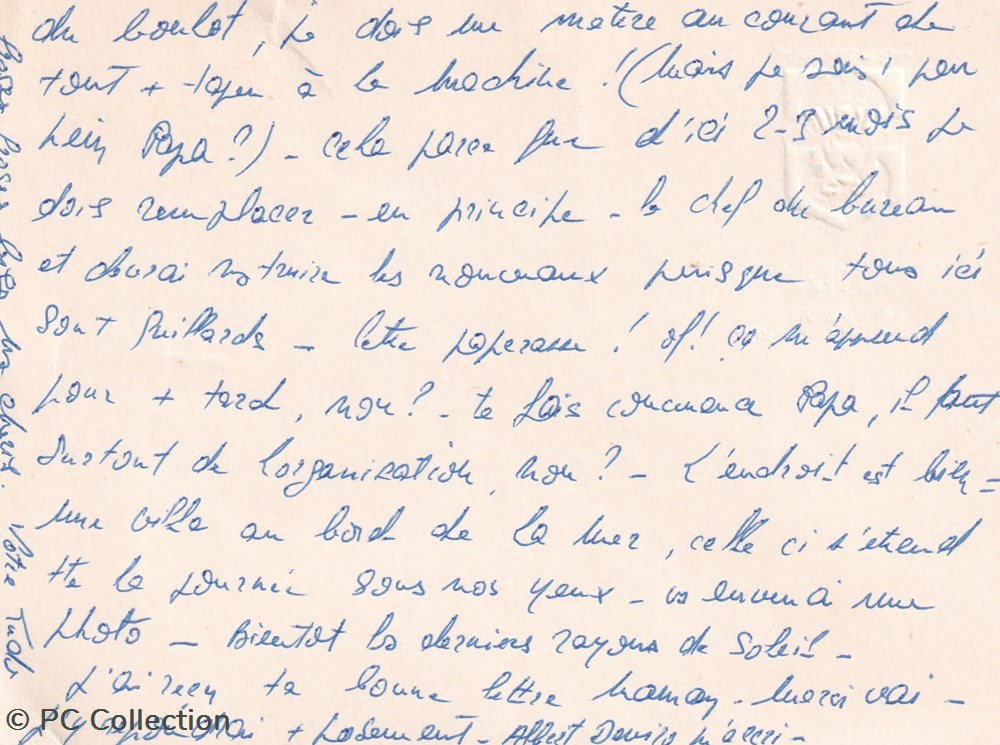 du boulot, je dois me mettre au courant de
tout + taper à la machine ! (Mais je suis, pour
Papa ?) - cela parce que d'ici 2-3 mois je
dois remplacer - en principe - le chef du bureau
et devrai instruire les nouveaux puisque tous ici
sont - cette paperasse ! of ! ça m'apprend
pour + tard, non ? - te fais Papa, il faut
surtout de l'organisation, non ? - L'endroit est bien -
une villa au bord de la mer, celle ci s'étend
tte la journée sous nos yeux - vs enverrai une
photo - Bientôt les derniers rayons de soleil -
J'ai reçu ta bonne lettre Maman - merci vai -
J'y répondrai + posément - Albert
Votre
© PC Collection